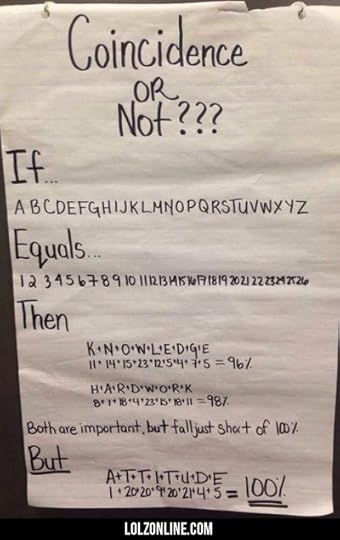 Coincidence
OR
Not???
If...
A B C D E F G H I J K L M N O P Q R S T U V W X Y Z
Equals...
1 2 3 4 5 6 7 8 9 10 11 12 13 14 15 16 17 18 19 20 21 22 23 24 25 26
Then
K+N+O+W+L+E+D+G+E
11+14+15+23+12+5+4+7+5 = 96%
H+A+R+D+W+O+R+K
8+1+18+4+23+15+18+11 = 98%
Both are important, but fall just short of 100%
But
A+T+T+I+T+U+D+E
1+20+20+9+20+21+4+5 = 100%
LOLZONLINE.COM